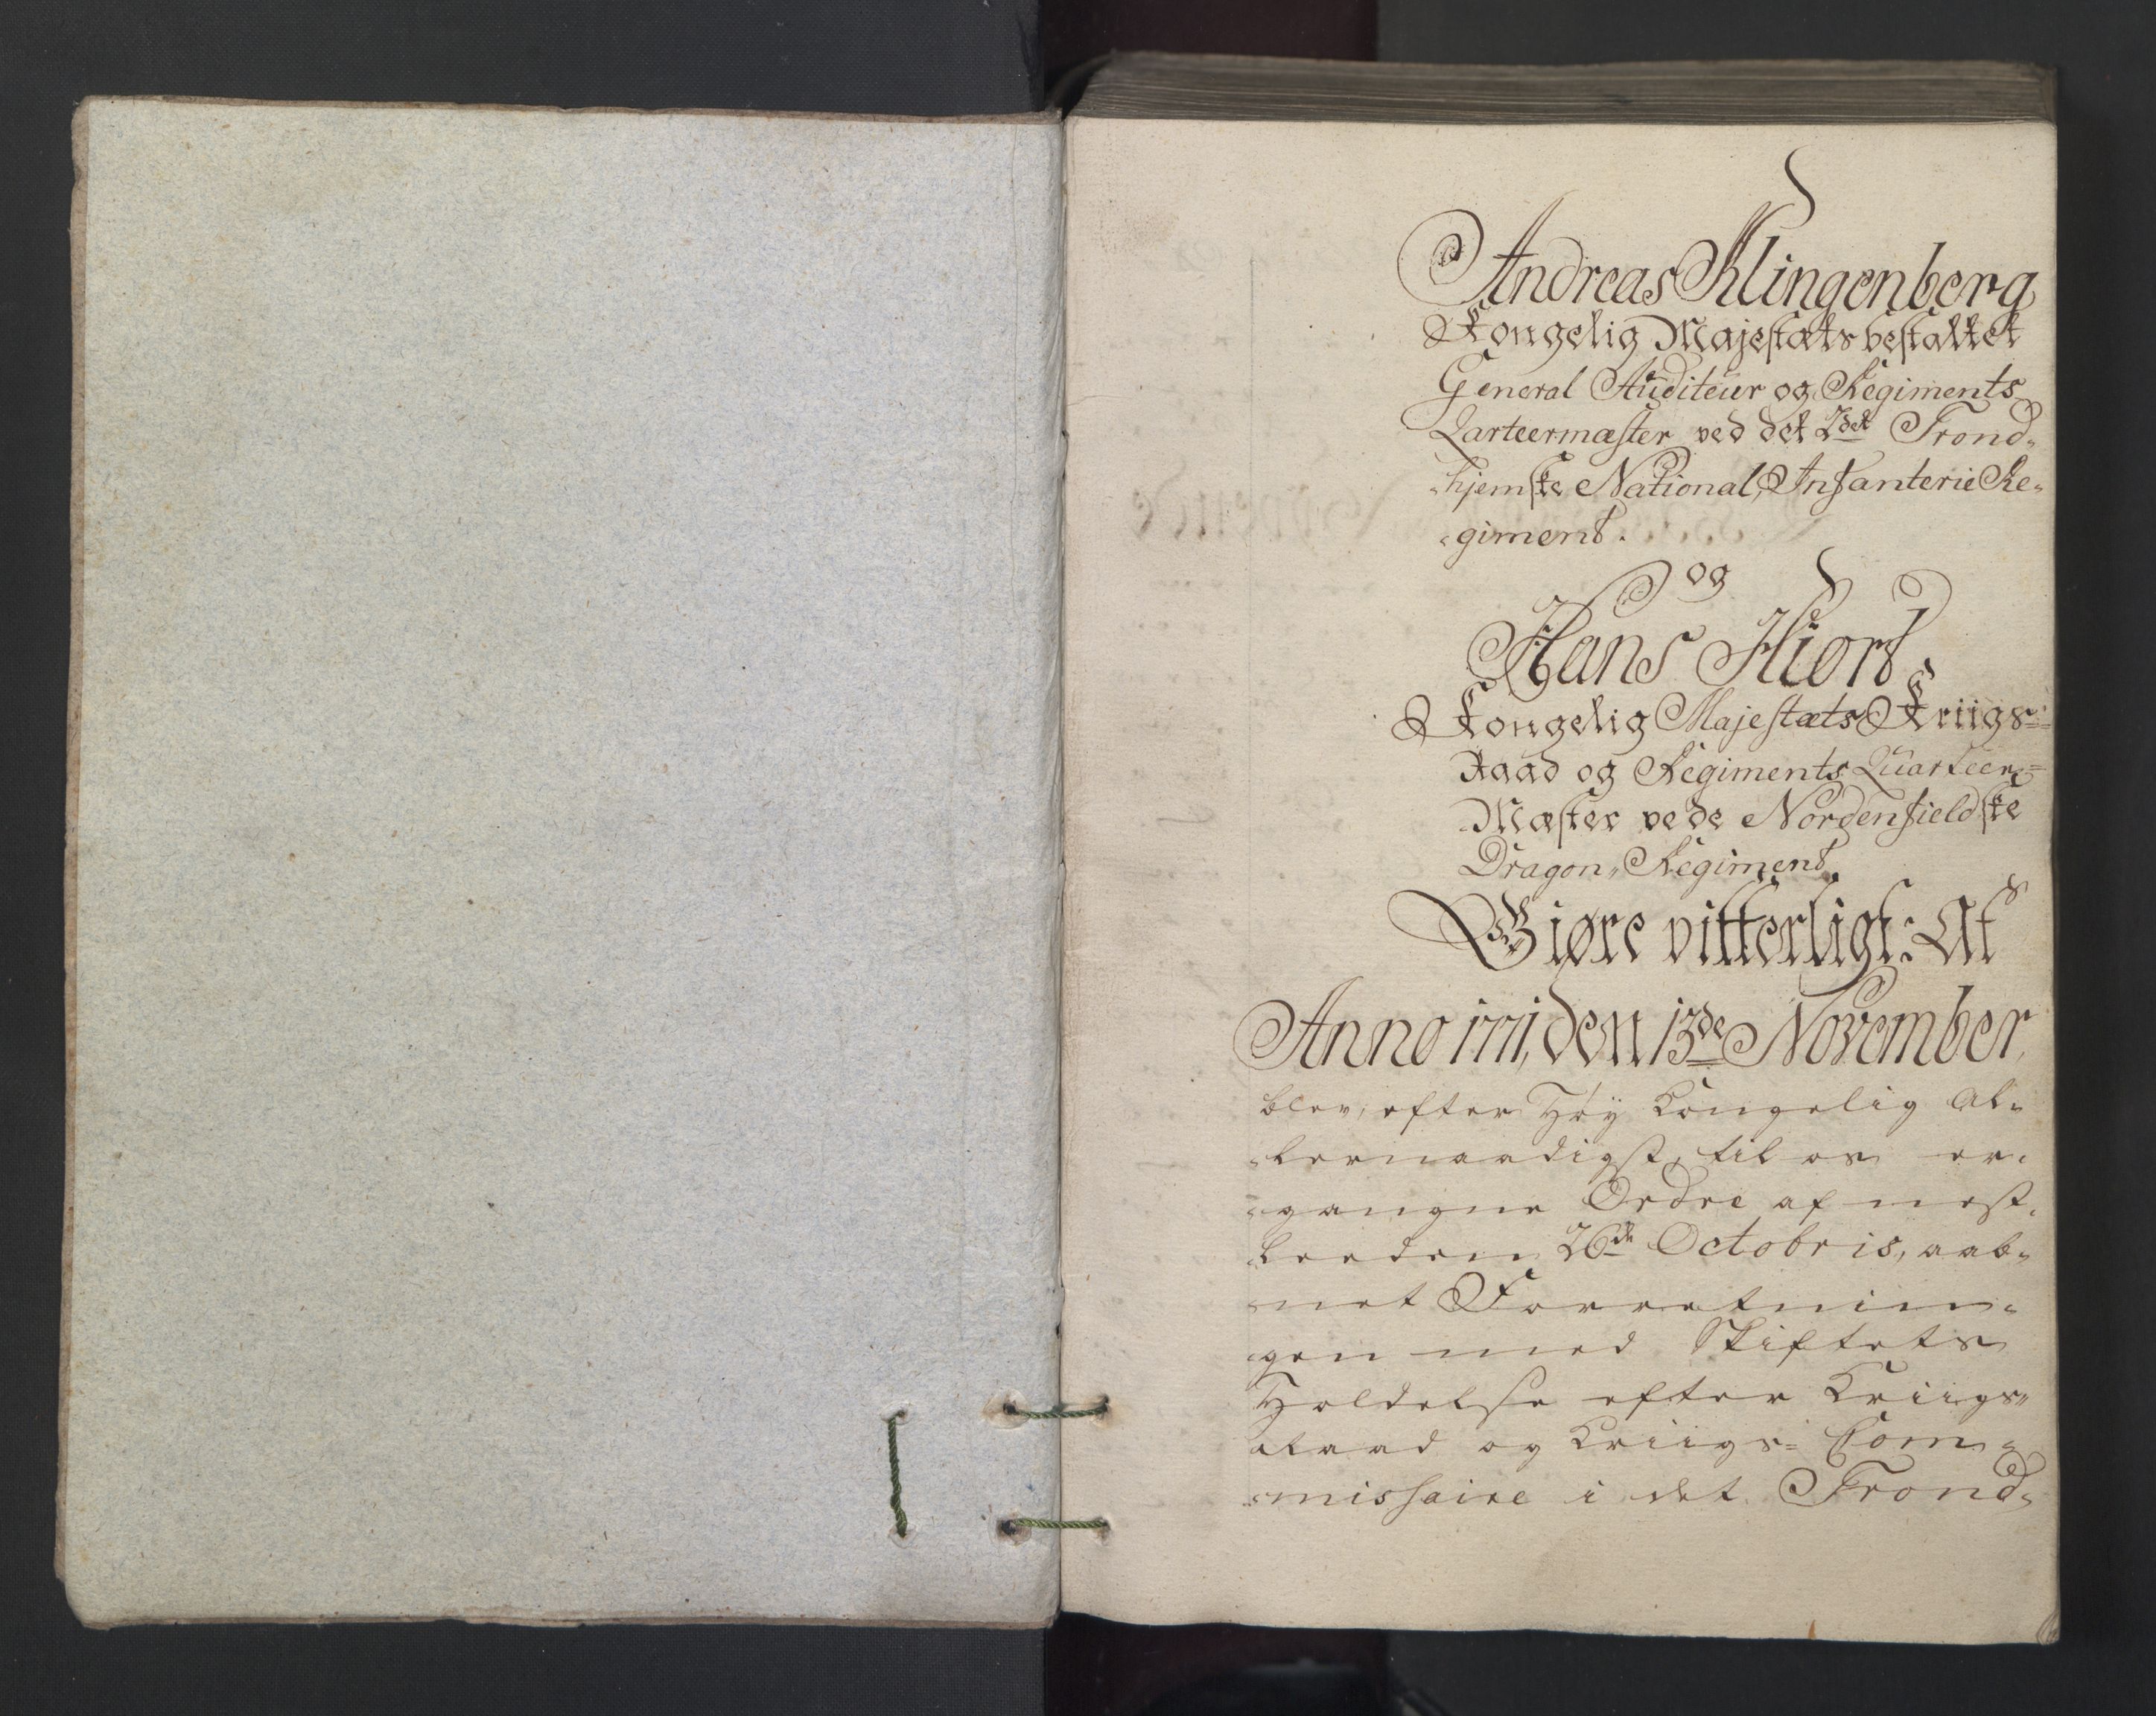 Andreas Klingenberg
Kongelig Majestæts bestaltet
General Auditeur og Regiments
Qarteermæster ved det 2det Trond„
„hjemske National, Infanterie Re„
„giment.
og
Hans Hiort,
Kongelig Majestæts Kriigs=
Raad og Regiments Quarteer=
Mæster ve de Nordenfieldske
Dragon„ Regiment.
Giøre vitterligt: At
Anno 1771, den 13de November
blev, efter Høy Kongelig Al„
„lernaadigst, til os er„
„gangne Ordre af nest„
„leeden 26de Octobris, aab„
„net Forretnin„
„gen med Skiftets
Holdelse efter Kriigs„
„Raad og Kriigs= Com„
„missaire i det Trond„